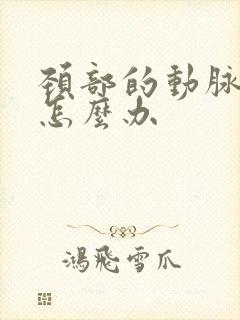 頸部的動脈
怎麼办
鴻飛雪爪